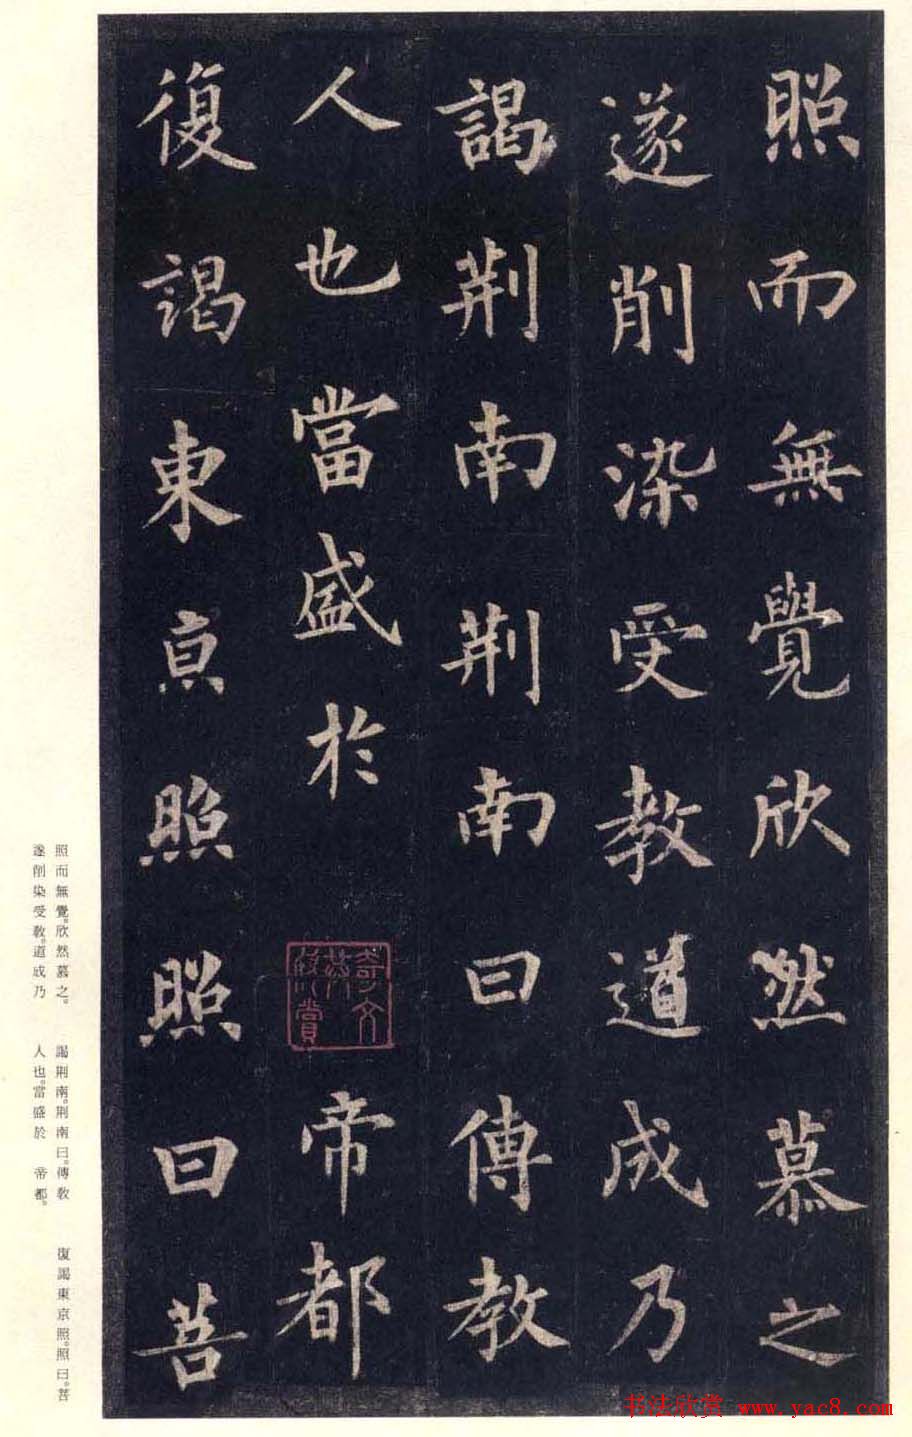 照而無覺欣然慕之
遂削染受教道成乃
謁荆南荆南曰傳教
人也當盛於 帝都
復謁東京照照曰菩
奇文
共賞
照而無覺。欣然慕之。
遂削染受教。道成乃
謁荆南。荆南曰。傳教
人也。當盛於 帝都。
復謁東京照。照曰。菩
书法欣赏 www.yac8.com